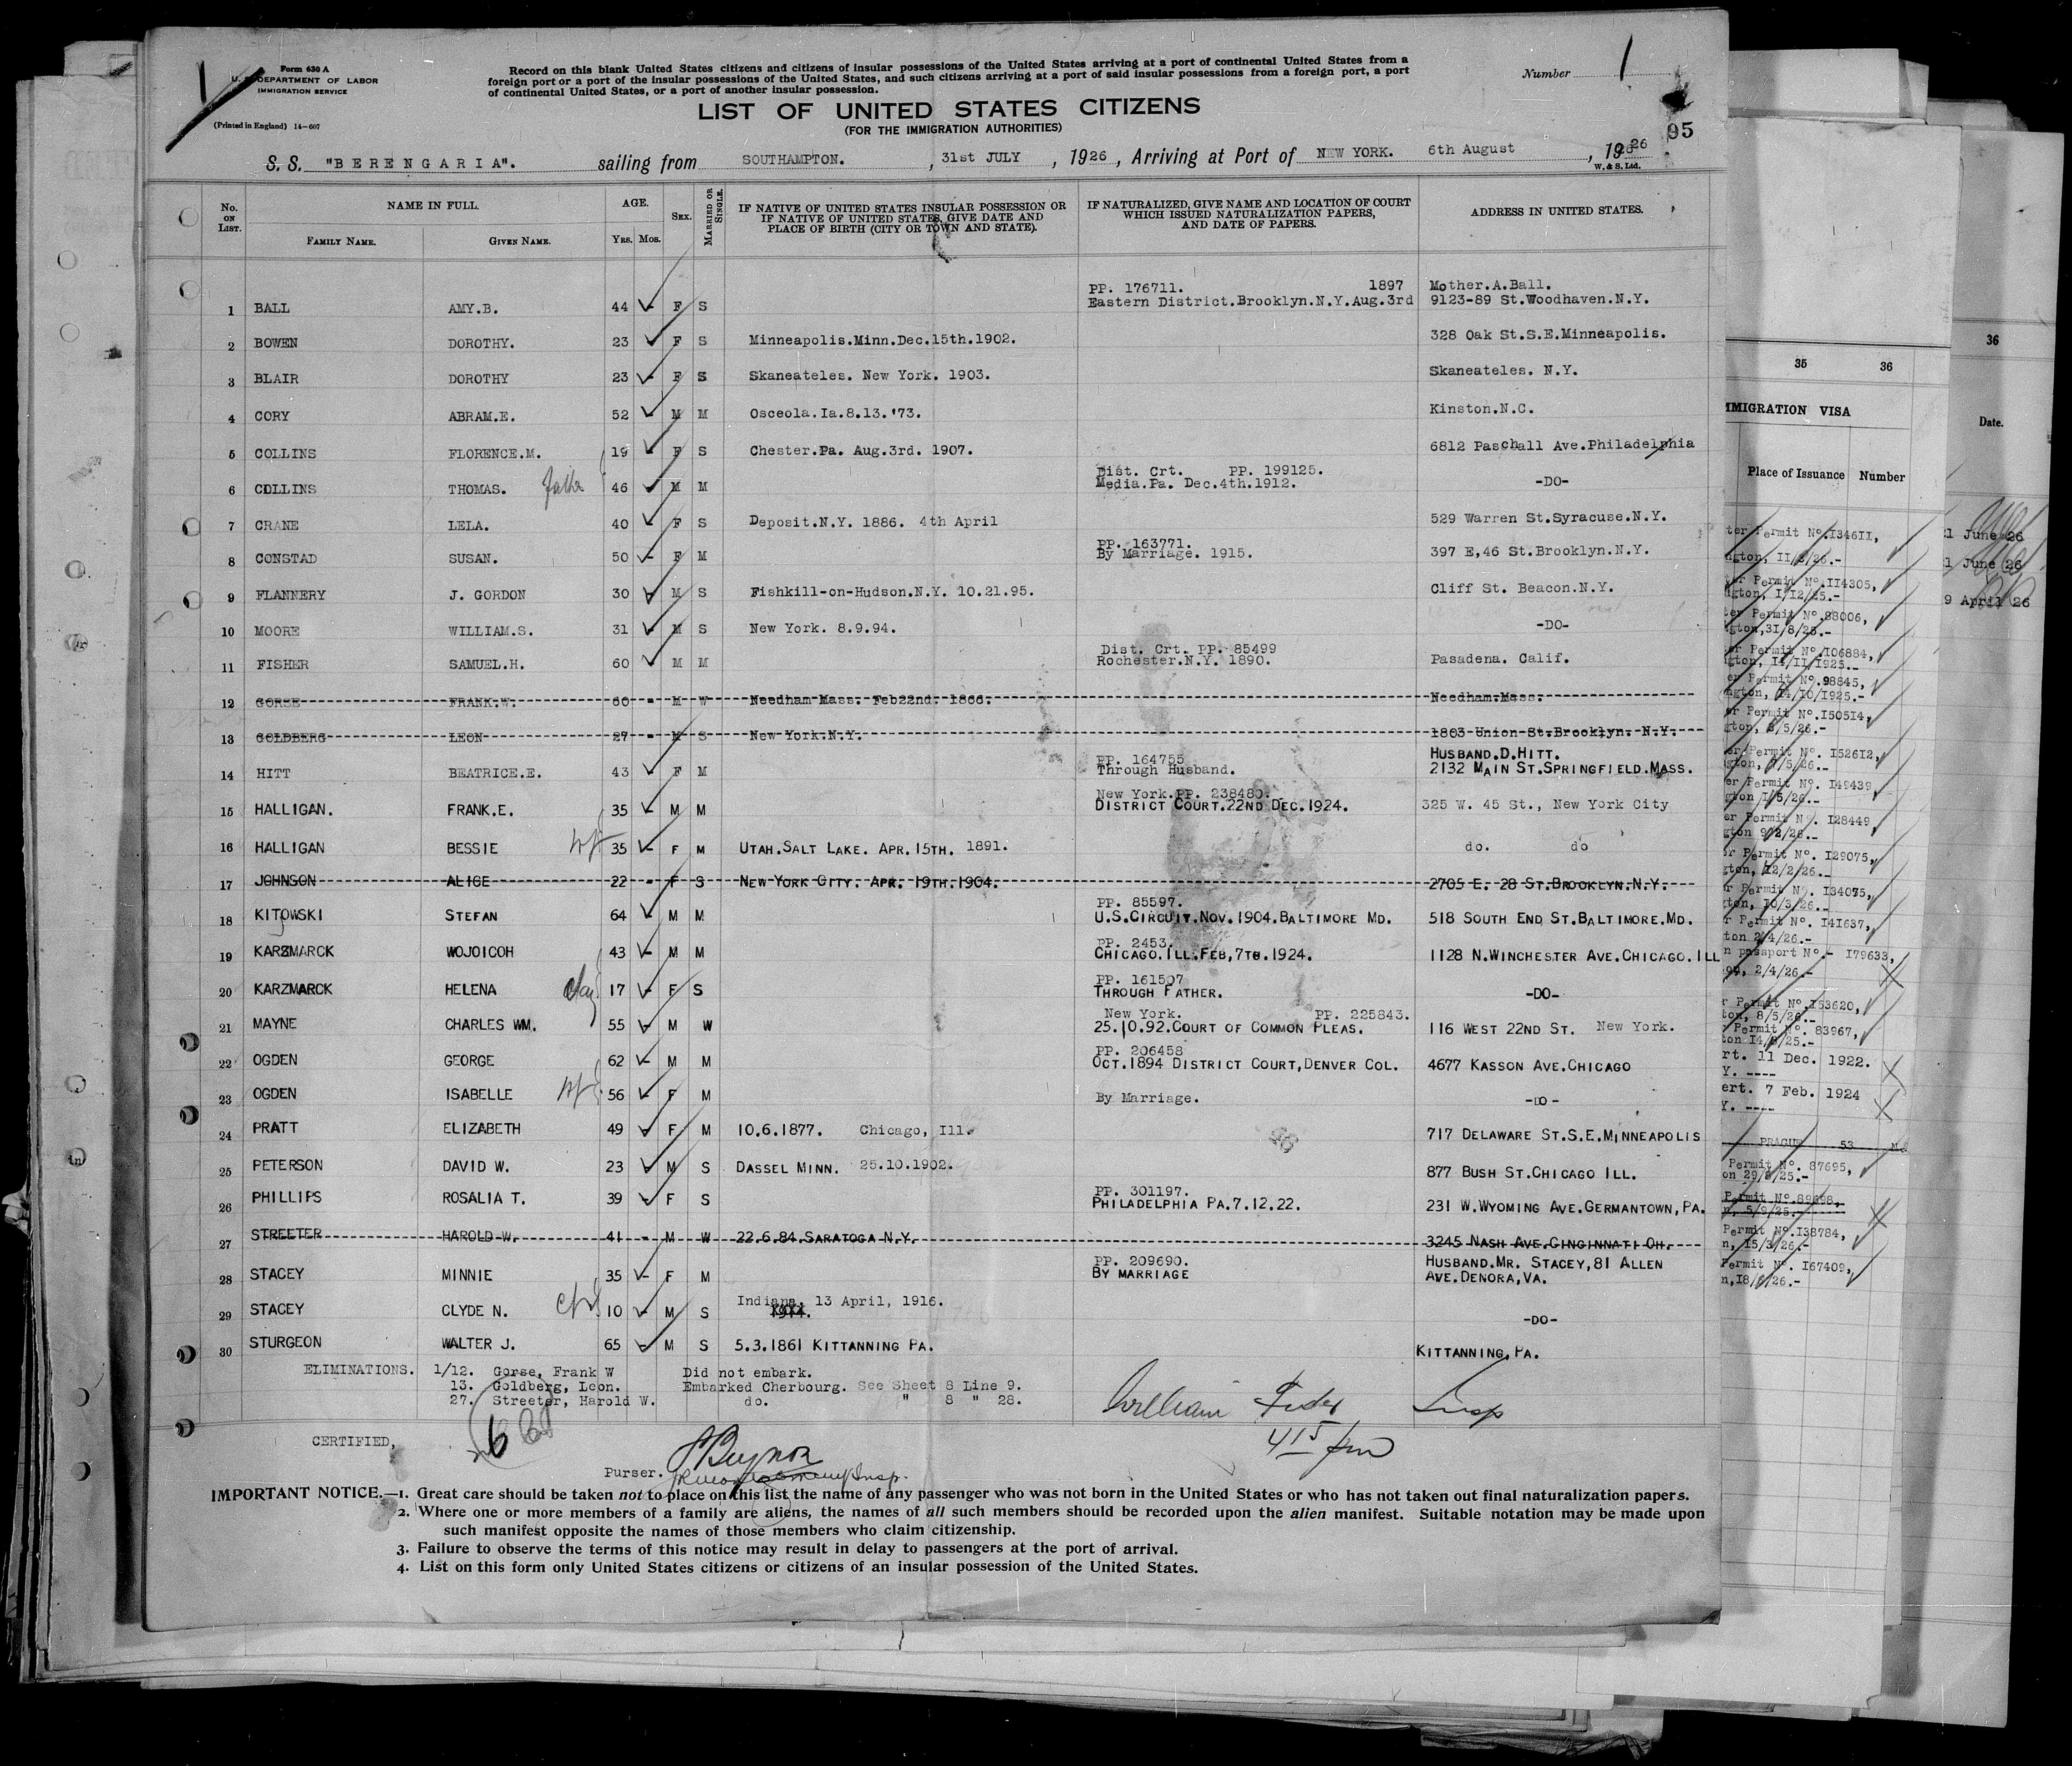 Form 630 A
U. S. DEPARTMENT OF LABOR
IMMIGRATION SERVICE
(Printed in England) 14-607
Record on this blank United States citizens and citizens of insular possessions of the United States arriving at a port of continental United States from a
foreign port or a port of the insular possessions of the United States, and such citizens arriving at a port of said insular possessions from a foreign port, a port
of continental United States, or a port of another insular possession.
Number 1
LIST OF UNITED STATES CITIZENS
(FOR THE IMMIGRATION AUTHORITIES)
95
S. S. "BERENGARIA". sailing from SOUTHAMPTON. , 31st JULY , 1926 , Arriving at Port of NEW YORK. 6th August , 1926
W. & S. Ltd.
No. ON LIST. NAME IN FULL. AGE. SEX. MARRIED OR SINGLE. IF NATIVE OF UNITED STATES INSULAR POSSESSION OR IF NATIVE OF UNITED STATES, GIVE DATE AND PLACE OF BIRTH (CITY OR TOWN AND STATE). IF NATURALIZED, GIVE NAME AND LOCATION OF COURT WHICH ISSUED NATURALIZATION PAPERS, AND DATE OF PAPERS. ADDRESS IN UNITED STATES.
FAMILY NAME. GIVEN NAME. YRS. MOS.
PP. 176711. 1897 Mother.A.Ball.
1 BALL AMY.B. 44 - F S Eastern District.Brooklyn.N.Y.Aug.3rd 9123-89 St.Woodhaven.N.Y.
2 BOWEN DOROTHY. 23 - F S Minneapolis.Minn.Dec.15th.1902. 328 Oak St.S.E.Minneapolis.
3 BLAIR DOROTHY 23 - F S Skaneateles. New York. 1903. Skaneateles. N.Y.
4 CORY ABRAM.E. 52 - M M Osceola.Ia.8.13.'73. Kinston.N.C.
5 COLLINS FLORENCE.M. 19 - F S Chester.Pa. Aug.3rd. 1907. 6812 Paschall Ave.Philadelphia
Dist. Crt. PP. 199125.
6 COLLINS THOMAS. father 46 - M M Media.Pa. Dec.4th.1912. -DO-
7 CRANE LELA. 40 - F S Deposit.N.Y. 1886. 4th April 529 Warren St.Syracuse.N.Y.
PP. 163771.
8 CONSTAD SUSAN. 50 - F M By Marriage. 1915. 397 E,46 St.Brooklyn.N.Y.
9 FLANNERY J. GORDON 30 - M S Fishkill-on-Hudson.N.Y. 10.21.95. Cliff St. Beacon.N.Y.
10 MOORE WILLIAM.S. 31 - M S New York. 8.9.94. -DO-
Dist. Crt. PP. 85499
11 FISHER SAMUEL.H. 60 - M M Rochester.N.Y. 1890. Pasadena. Calif.
12 GORSE FRANK.W. 60 - M W Needham Mass. Feb22nd. 1866. Needham.Mass.
13 GOLDBERG LEON 27 - M S New York.N.Y. 1803 Union St.Brooklyn. N.Y.
PP. 164755 HUSBAND.D.HITT.
14 HITT BEATRICE.E. 43 - F M Through Husband. 2132 MAIN ST.SPRINGFIELD.MASS.
New York.PP. 238480.
15 HALLIGAN. FRANK.E. 35 - M M DISTRICT COURT.22ND DEC.1924. 325 W. 45 St., New York City
16 HALLIGAN BESSIE wf 35 - F M UTAH.SALT LAKE. APR.15TH. 1891. do. do
17 JOHNSON ALICE 22 - F S NEW YORK CITY. APR. 19TH.1904. 2705 E. 28 ST.BROOKLYN.N.Y.
PP. 85597.
18 KITOWSKI STEFAN 64 - M M U.S.CIRCUIT.NOV.1904.BALTIMORE MD. 518 SOUTH END ST.BALTIMORE.MD.
PP. 2453.
19 KARZMARCK WOJOICOH 43 - M M CHICAGO.ILL.FEB,7TH.1924. 1128 N.WINCHESTER AVE.CHICAGO.ILL
PP. 161507
20 KARZMARCK HELENA 17 - F S THROUGH FATHER. -DO-
New York. PP. 225843.
21 MAYNE CHARLES WM. 55 - M W 25.10.92.COURT OF COMMON PLEAS. 116 WEST 22ND ST. New York.
PP. 206458
22 OGDEN GEORGE 62 - M M OCT.1894 DISTRICT COURT,DENVER COL. 4677 KASSON AVE.CHICAGO
23 OGDEN ISABELLE wf 56 - F M By Marriage. -DO-
24 PRATT ELIZABETH 49 - F M 10.6.1877. Chicago, Ill. 717 DELAWARE ST.S.E.MINNEAPOLIS
25 PETERSON DAVID W. 23 - M S DASSEL MINN. 25.10.1902. 877 BUSH ST.CHICAGO ILL.
PP. 301197.
26 PHILLIPS ROSALIA T. 39 - F S PHILADELPHIA PA.7.12.22. 231 W.WYOMING AVE.GERMANTOWN,PA.
27 STREETER HAROLD W. 41 - M W 22.6.84.SARATOGA N.Y. 3245 NASH AVE.CINCINNATI OH.
PP. 209690. HUSBAND.MR. STACEY,81 ALLEN
28 STACEY MINNIE 35 - F M BY MARRIAGE AVE.DENORA,VA.
Indiana, 13 April, 1916.
29 STACEY CLYDE N. 10 - M S -DO-
30 STURGEON WALTER J. 65 - M S 5.3.1861 KITTANNING PA. KITTANNING,PA.
ELIMINATIONS. 1/12. Gorse, Frank W Did not embark.
13. Goldberg, Leon. Embarked Cherbourg. See Sheet 8 Line 9.
27. Streeter, Harold W. do. " 8 " 28.
William Insp
415 pm
CERTIFIED,
Purser.
IMPORTANT NOTICE.—1. Great care should be taken not to place on this list the name of any passenger who was not born in the United States or who has not taken out final naturalization papers.
2. Where one or more members of a family are aliens, the names of all such members should be recorded upon the alien manifest. Suitable notation may be made upon
such manifest opposite the names of those members who claim citizenship.
3. Failure to observe the terms of this notice may result in delay to passengers at the port of arrival.
4. List on this form only United States citizens or citizens of an insular possession of the United States.
35 36
IMMIGRATION VISA
Place of Issuance Number
Permit No.I34611,
Permit No.II4305,
Permit No.88006,
Permit No.I06884,
Permit No.98845,
Permit No.I50514,
Permit No. I52612,
Permit No. I49439
Permit No. I28449
Permit No. I29075,
Permit No. I34075,
Permit No. I41637,
passport No.- I79633,
Permit No.I53620,
Permit No. 83967,
11 Dec. 1922.
7 Feb. 1924
PRAGUE 53
Permit No. 87695,
Permit No.89698,
Permit No.I38784,
Permit No. I67409,
36
Date.
June 26
June 26
9 April 26